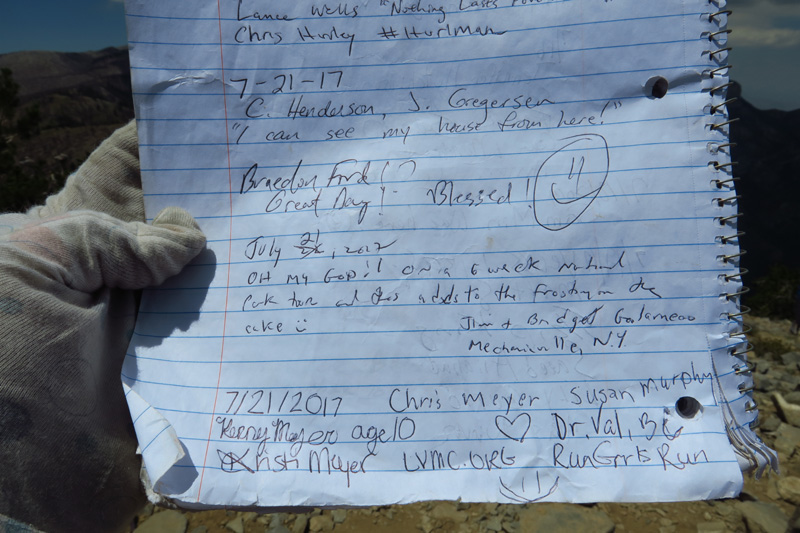 Lance Wells "Nothing Lasts
Chris Hurley #Hurlman
7-21-17
C. Henderson, J. Gregersen
"I can see my house from here!"
Braedon Ford!
Great Day! Blessed!
July 21, 2017
OH MY GOD!! ON a 6 week National
Park tour and this adds to the frosting on the
cake Jim & Bridget
Mechanicville, N.Y.
7/21/2017 Chris Meyer Susan Murphy
Meyer age 10 Dr. Val,
Trish Meyer LVMC.ORG Run Grrls Run